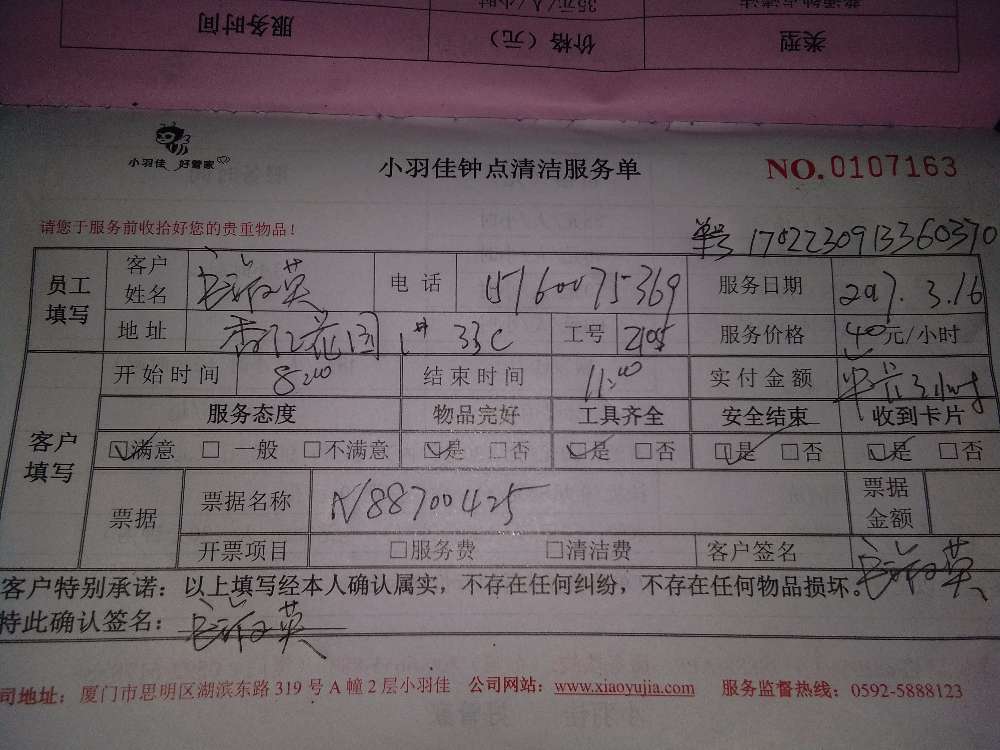 类型 价格（元） 服务时间
35元/人/小时
小羽佳 好管家
小羽佳钟点清洁服务单
NO.0107163
请您于服务前收拾好您的贵重物品！
单号 1702230913360370
员工填写 客户姓名 电话 15160075369 服务日期 2017.3.16
地址 香江花园 1# 33C 工号 2105 服务价格 40元/小时
客户填写 开始时间 8:00 结束时间 11:00 实付金额
服务态度 物品完好 工具齐全 安全结束 收到卡片
☑满意 □一般 □不满意 ☑是 □否 ☑是 □否 ☑是 □否 ☑是 □否
票据 票据名称 N88700425 票据金额
开票项目 □服务费 □清洁费 客户签名
客户特别承诺：以上填写经本人确认属实，不存在任何纠纷，不存在任何物品损坏。
特此确认签名：
司地址：厦门市思明区湖滨东路319号A幢2层小羽佳 公司网站：www.xiaoyujia.com 服务监督热线：0592-5888123